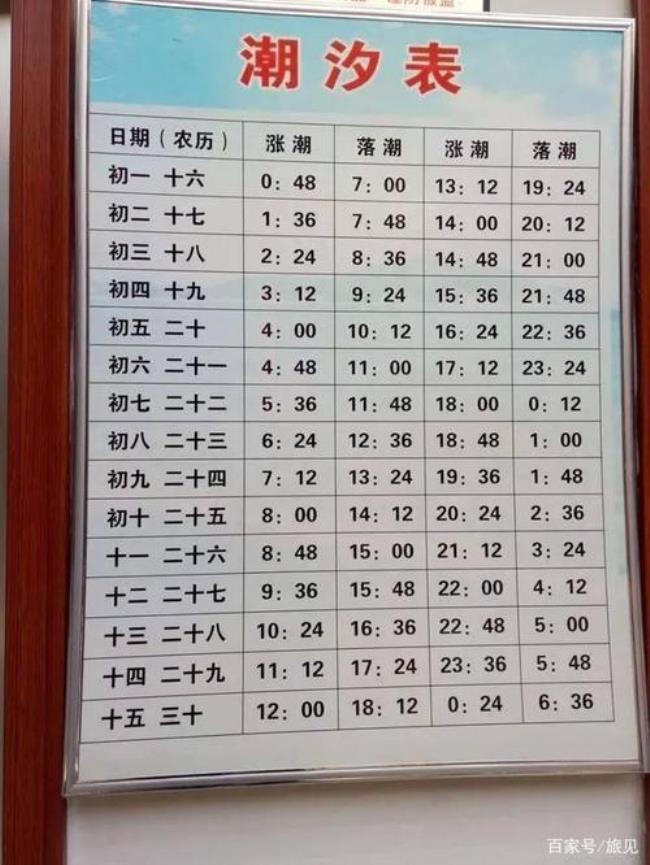 潮汐表
日期（农历） 涨潮 落潮 涨潮 落潮
初一 十六 0：48 7：00 13：12 19：24
初二 十七 1：36 7：48 14：00 20：12
初三 十八 2：24 8：36 14：48 21：00
初四 十九 3：12 9：24 15：36 21：48
初五 二十 4：00 10：12 16：24 22：36
初六 二十一 4：48 11：00 17：12 23：24
初七 二十二 5：36 11：48 18：00 0：12
初八 二十三 6：24 12：36 18：48 1：00
初九 二十四 7：12 13：24 19：36 1：48
初十 二十五 8：00 14：12 20：24 2：36
十一 二十六 8：48 15：00 21：12 3：24
十二 二十七 9：36 15：48 22：00 4：12
十三 二十八 10：24 16：36 22：48 5：00
十四 二十九 11：12 17：24 23：36 5：48
十五 三十 12：00 18：12 0：24 6：36
百家号/旅见